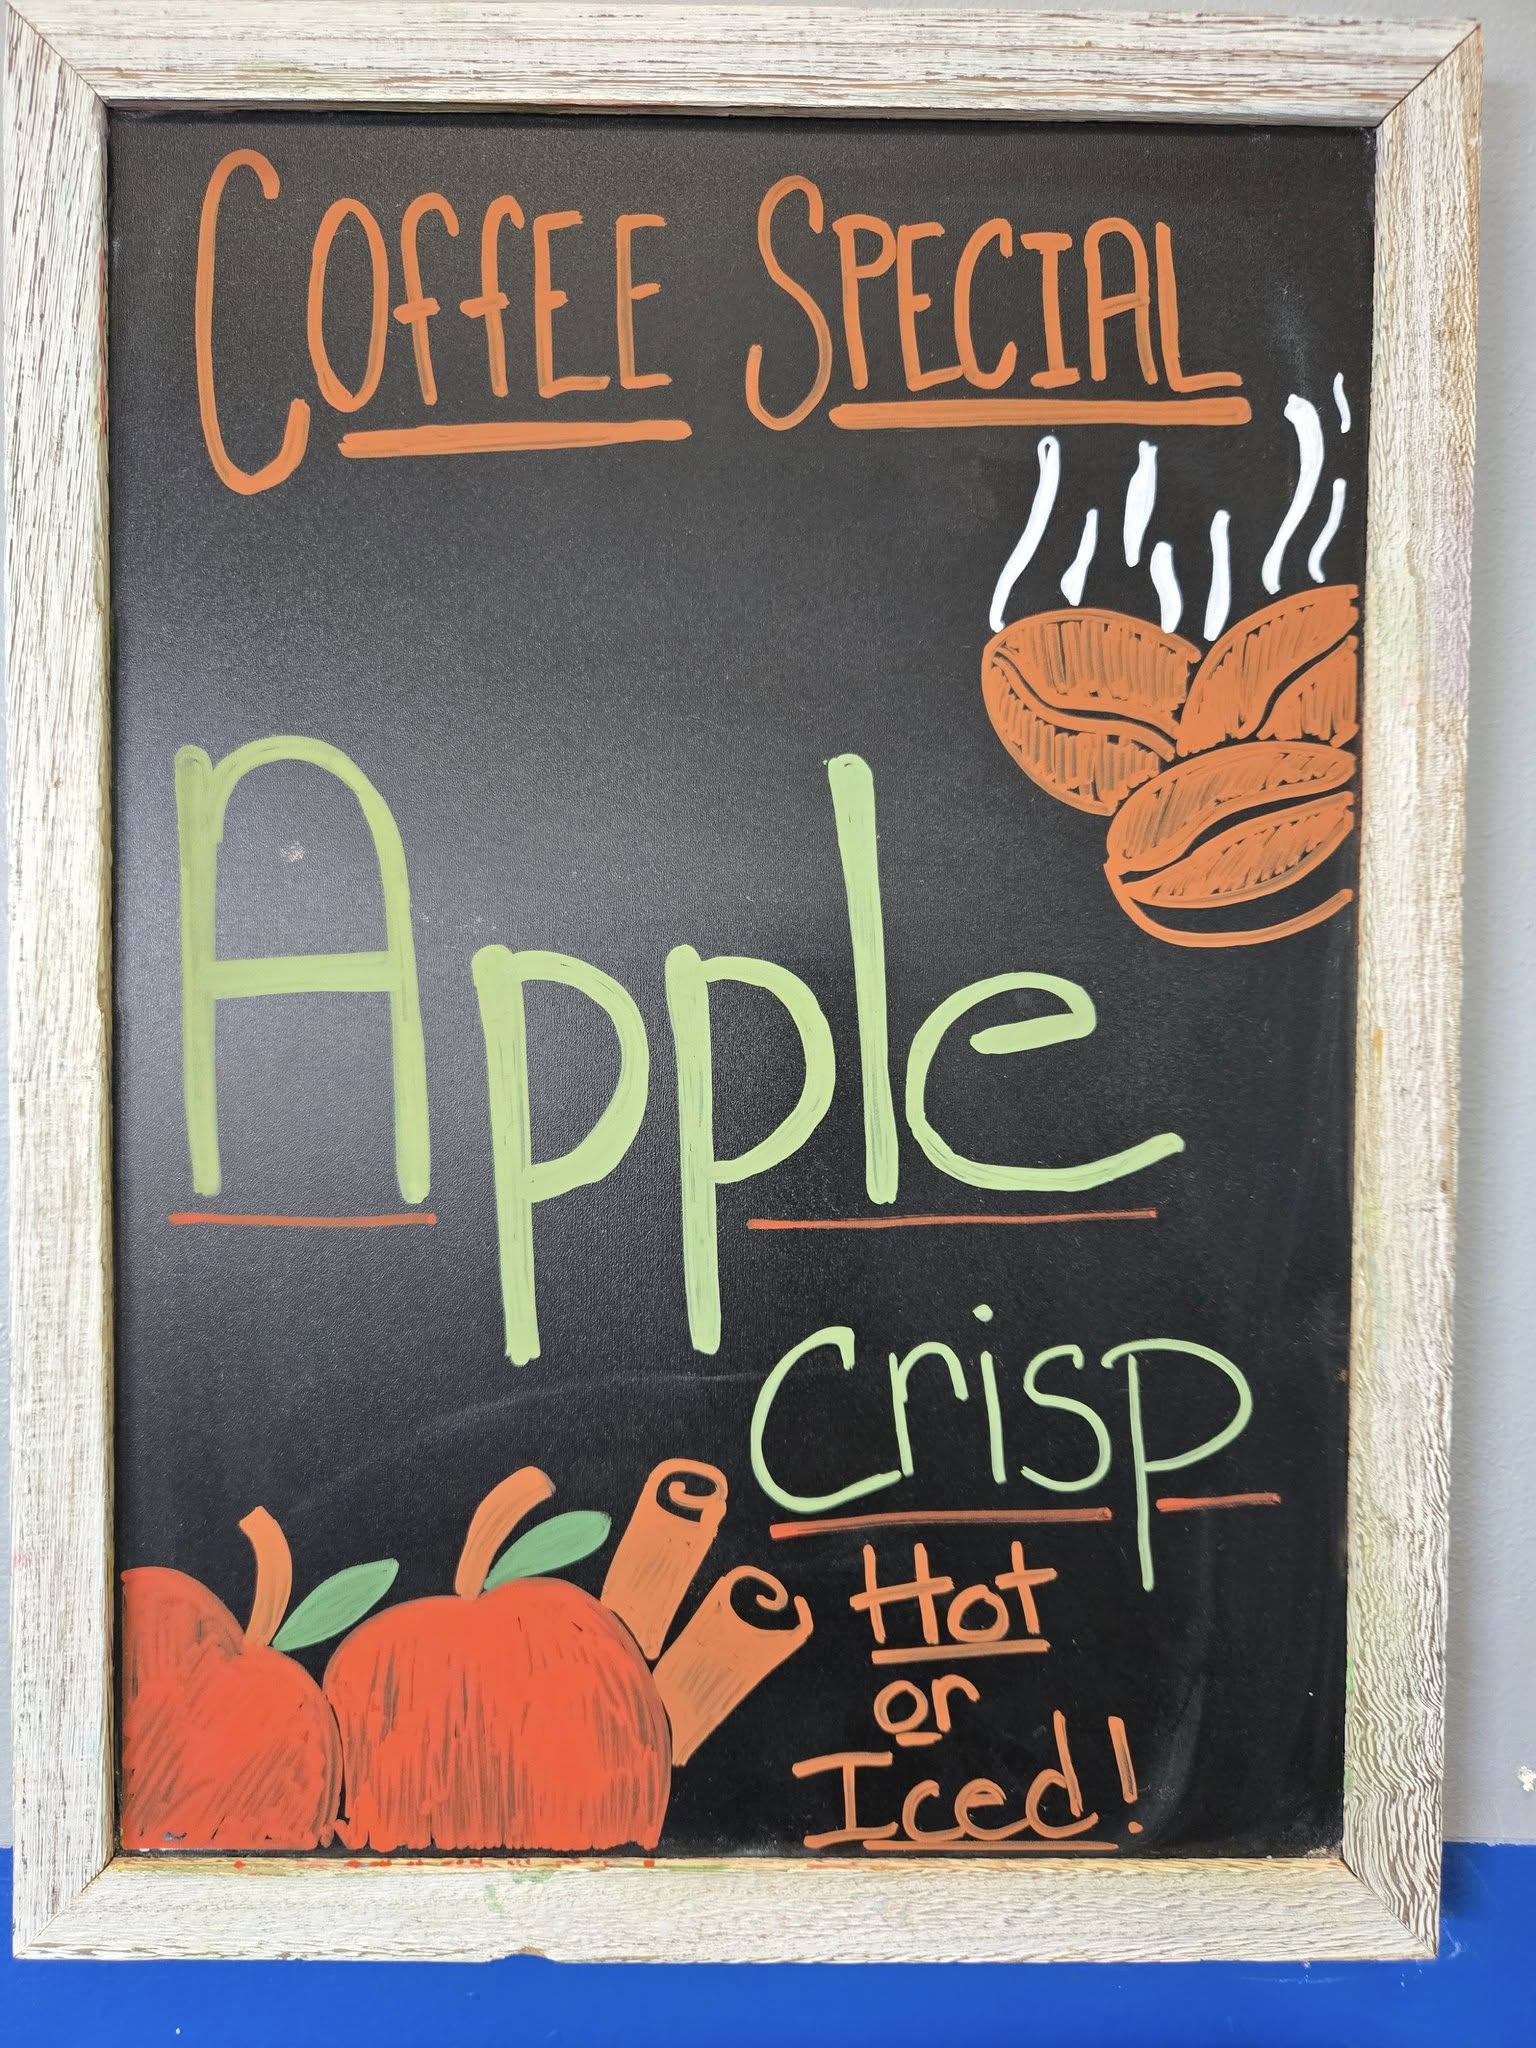 COffEE SPECIAL
Apple
crisp
Hot
or
Iced!